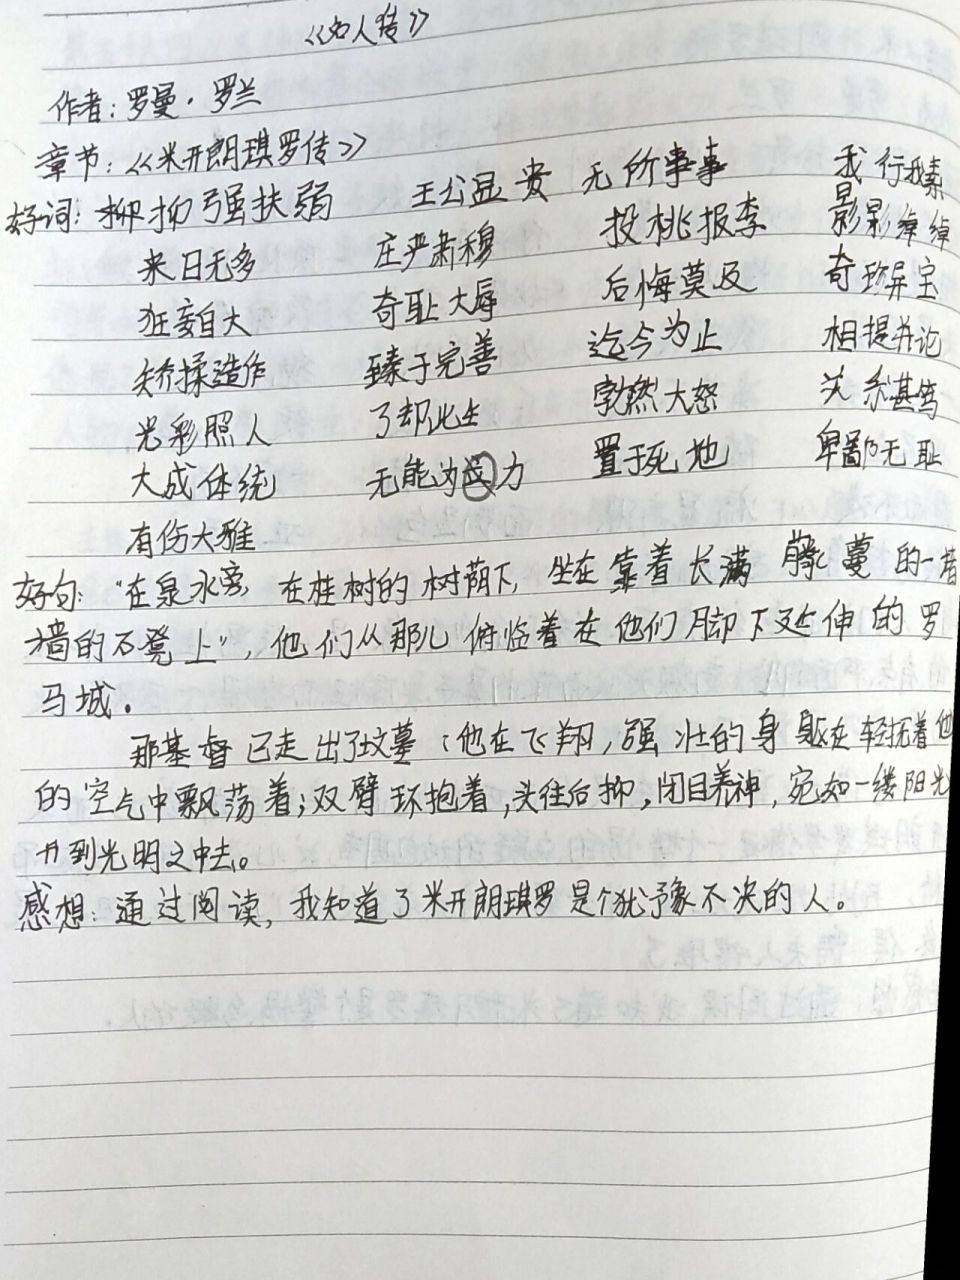 《名人传》
作者:罗曼·罗兰
章节:《米开朗琪罗传》
好词:抑强扶弱 王公显贵 无所事事 我行我素
来日无多 庄严肃穆 投桃报李 影影绰绰
狂妄自大 奇耻大辱 后悔莫及 奇珍异宝
矫揉造作 臻于完善 迄今为止 相提并论
光彩照人 了却此生 勃然大怒 关系甚笃
大成体统 无能为力 置于死地 卑鄙无耻
有伤大雅
好句:"在泉水旁,在桂树的树荫下,坐在靠着长满藤蔓的一堵
墙的石凳上",他们从那儿俯临着在他们脚下延伸的罗
马城。
那基督已走出了坟墓;他在飞翔,强壮的身躯在轻抚着他
的空气中飘荡着;双臂环抱着,头往后抑,闭目养神,宛如一缕阳光
升到光明之中去。
感想:通过阅读,我知道了米开朗琪罗是个犹豫不决的人。